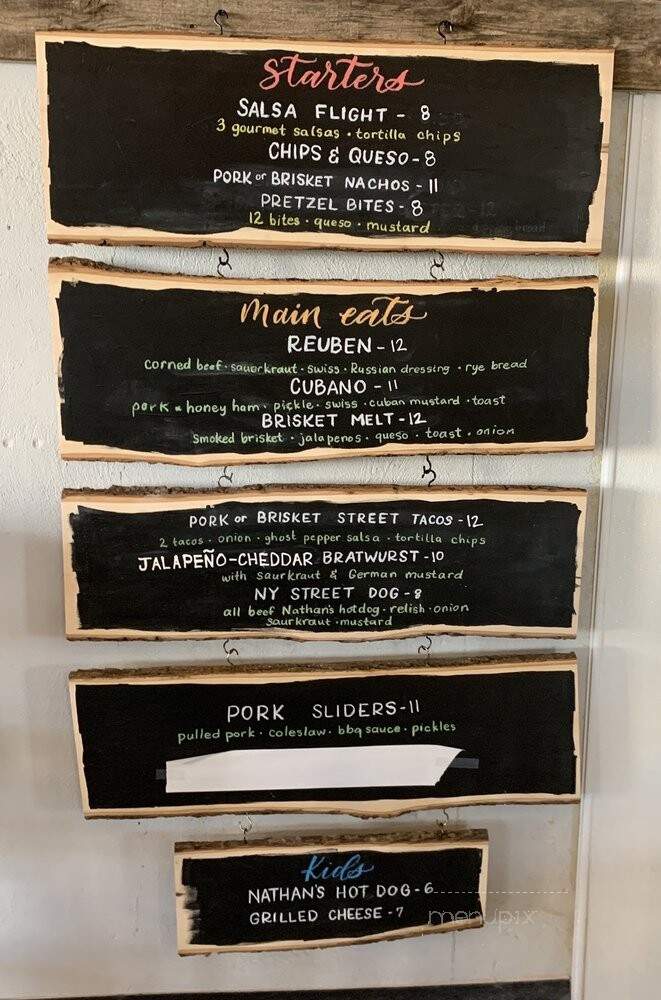 Starters
SALSA FLIGHT - 8
3 gourmet salsas · tortilla chips
CHIPS & QUESO - 8
PORK or BRISKET NACHOS - 11
PRETZEL BITES - 8
12 bites · queso · mustard
main eats
REUBEN - 12
corned beef · sauorkraut · swiss · Russian dressing · rye bread
CUBANO - 11
pork & honey ham · pickle · swiss · cuban mustard · toast
BRISKET MELT - 12
Smoked brisket · jalapenos · queso · toast · onion
PORK or BRISKET STREET TACOS - 12
2 tacos · onion · ghost pepper salsa · tortilla chips
JALAPEÑO-CHEDDAR BRATWURST - 10
with saurkraut & German mustard
NY STREET DOG - 8
all beef Nathan's hotdog · relish · onion
saurkraut · mustard
PORK SLIDERS - 11
pulled pork · coleslaw · bbq sauce · pickles
Kids
NATHAN'S HOT DOG - 6
GRILLED CHEESE - 7
menupix